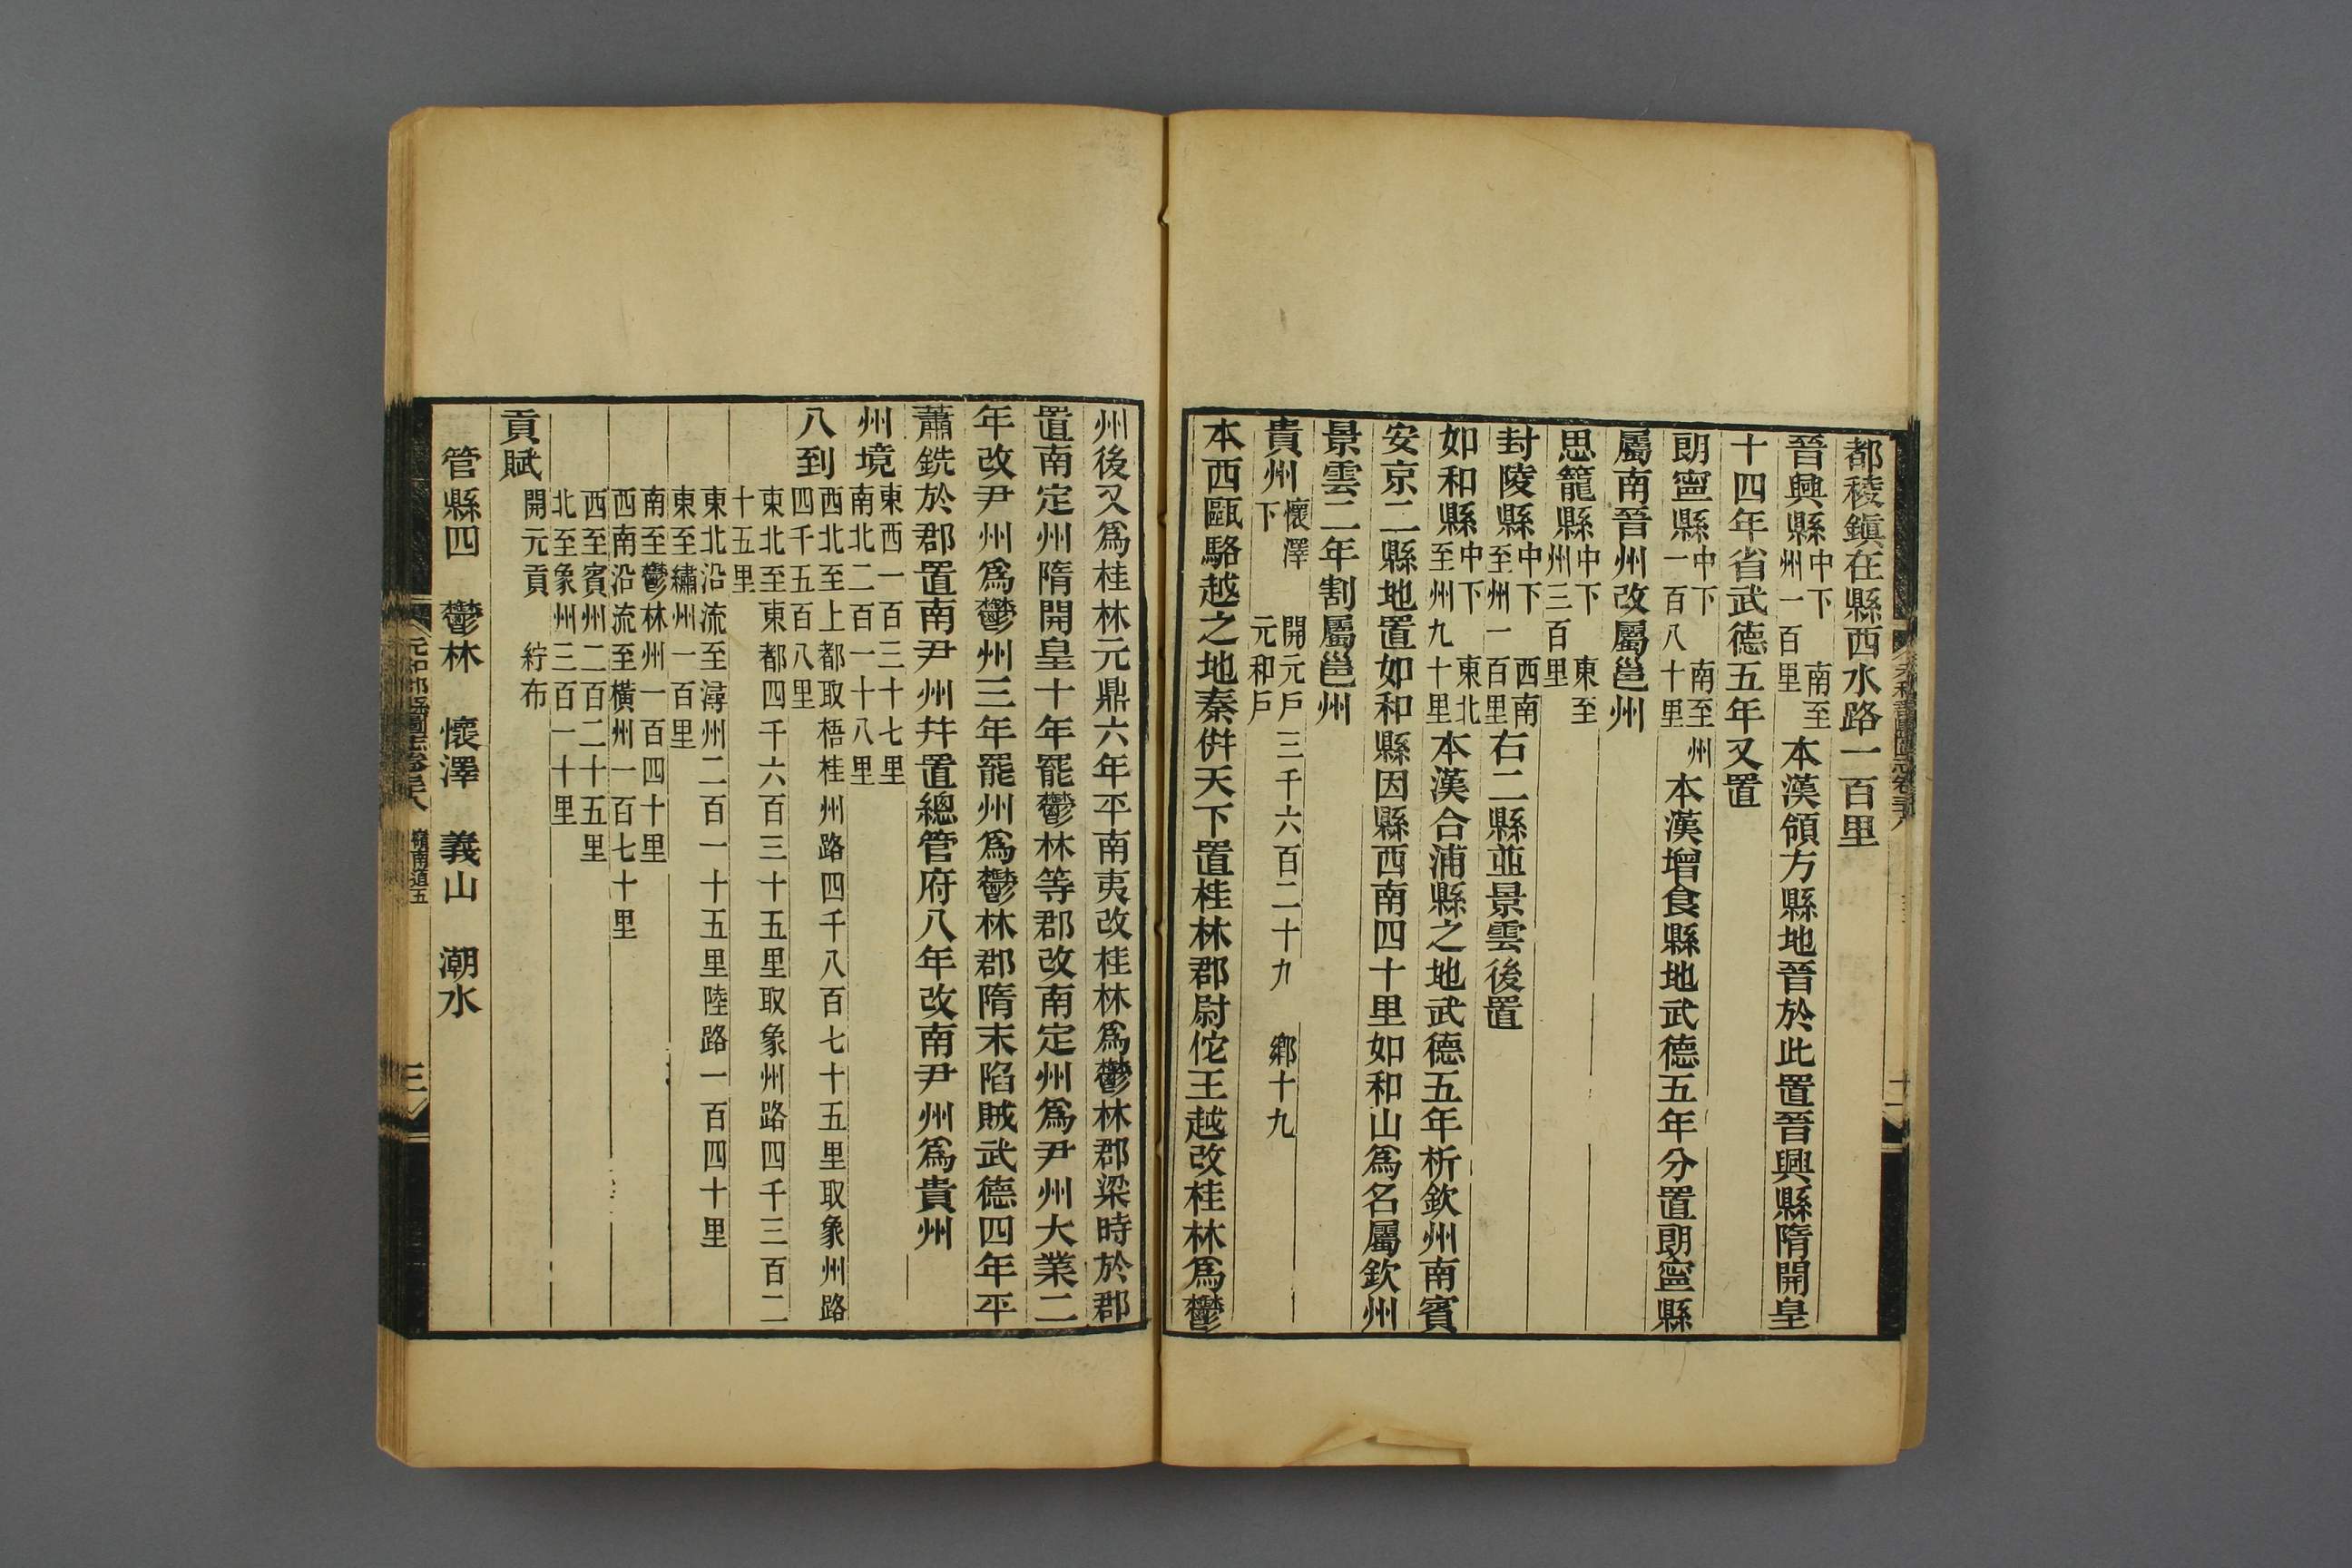 都稜鎭在縣西水路一百里
晉興縣中下 南至州一百里 本漢領方縣地晉於此置晉興縣隋開皇
十四年省武德五年又置
朗寧縣中下 南至州一百八十里 本漢增食縣地武德五年分置朗寧縣
屬南晉州改屬邕州
思籠縣中下 東至州三百里
封陵縣中下 西南至州一百里 右二縣並景雲後置
如和縣中下 東北至州九十里 本漢合浦縣之地武德五年析欽州南賓
安京二縣地置如和縣因縣西南四十里如和山爲名屬欽州
景雲二年割屬邕州
貴州懷澤下 開元戶三千六百二十九 鄉十九 元和戶
本西甌駱越之地秦倂天下置桂林郡尉佗王越改桂林爲鬱
州後又爲桂林元鼎六年平南夷改桂林爲鬱林郡梁時於郡
置南定州隋開皇十年罷鬱林等郡改南定州爲尹州大業二
年改尹州爲鬱州三年罷州爲鬱林郡隋末陷賊武德四年平
蕭銑於郡置南尹州幷置總管府八年改南尹州爲貴州
州境東西一百三十七里
南北二百一十八里
八到西北至上都取梧桂州路四千八百七十五里取象州路
四千五百八里
東北至東都四千六百三十五里取象州路四千三百二
十五里
東北沿流至潯州二百一十五里陸路一百四十里
東至繡州一百里
南至鬱林州一百四十里
西南沿流至橫州一百七十里
西至賓州二百二十五里
北至象州三百一十里
貢賦 開元貢 紵布
管縣四 鬱林 懷澤 義山 潮水
元和郡縣圖志卷三十八 嶺南道五
三